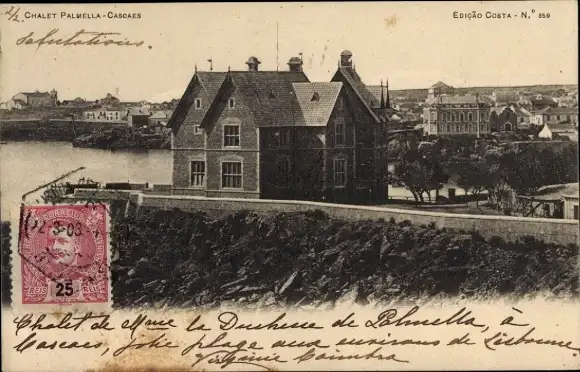 2/2
CHALET PALMELLA - CASCAES
EDIÇÃO COSTA - N.º 359
Salutations
22-3-03
REIS 25 REIS
Chalet de Mme la Duchesse de Palmella, à
Cascaes, jolie plage aux environs de Lisbonne
Virginie Coimbra